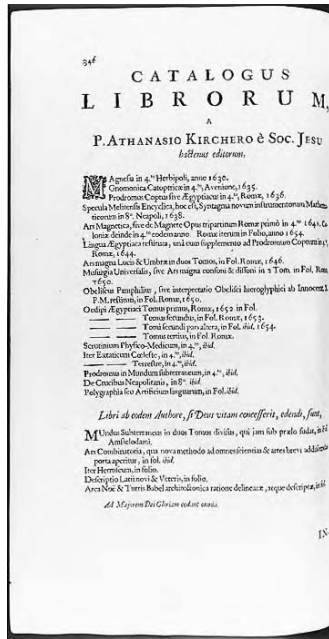 346
CATALOGUS
LIBRORUM,
A
P. ATHANASIO KIRCHERO è SOC. JESU
hactenus editorum.
MAgnesia in 4.to Herbipoli, anno 1630.
Gnomonica Catoptricæ in 4.to, Avenione, 1635.
Prodromus Coptus sive Ægyptiacus in 4.to, Romæ, 1636.
Specula Melitensis Encyclica, hoc est, Syntagma novum instrumentorum
ticorum in 8o. Neapoli, 1638.
Ars Magnetica, sive de Magnete Opus tripartitum Romæ primò in 4.to 1641.
loniæ deinde in 4.to eodem anno. Romæ iterum in Folio, anno 1654.
Lingua Ægyptiaca restituta, unà cum supplemento ad Prodromum Coptum in 4.to,
Romæ, 1644.
Ars magna Lucis & Umbræ in duos Tomos, in Fol. Romæ, 1646.
Musurgia Universalis, sive Ars magna consoni & dissoni in 2 Tom. in Fol. Rom.
1650.
Obeliscus Pamphilius, sive interpretatio Obelisci hieroglyphici ab Innocent. X.
P.M. restituti, in Fol. Romæ, 1650.
Oedipi Ægyptiaci Tomus primus, Romæ, 1652 in Fol.
Tomus secundus, in Fol. Romæ, 1653.
Tomi secundi pars altera, in Fol. ibid. 1654.
Tomus tertius, in Fol. Romæ.
Scrutinium Physico-Medicum, in 4.to, ibid.
Iter Extaticum Cœleste, in 4.to, ibid.
Terrestre, in 4.to, ibid.
Prodromus in Mundum subterraneum, in 4.to, ibid.
De Crucibus Neapolitanis, in 8o. ibid.
Polygraphia seu Artificium linguarum, in Fol. ibid.
Libri ab eodem Authore, si Deus vitam concesserit, edendi, sunt,
MUndus Subterraneus in duos Tomos divisus, qui jam sub prælo sudat, in Fol.
Amstelodami.
Ars Combinatoria, qua nova methodo ad omnes scientias & artes brevi addiscendas
porta aperitur, in fol. ibid.
Iter Hetruscum, in folio.
Descriptio Latii novi & Veteris, in folio.
Arca Noë & Turris Babel architectonica ratione delineatæ, atque descriptæ, in fol.
Ad Majorem Dei Gloriam cedant omnia.
IN-